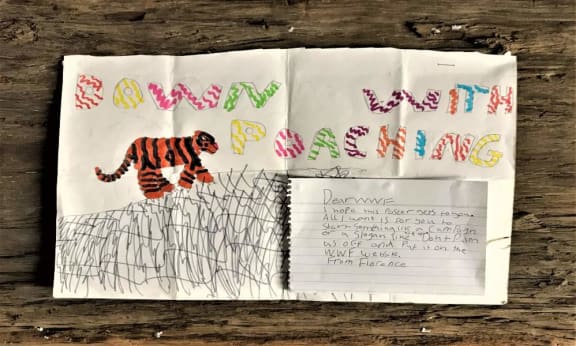 DOWN WITH
POACHING
Dear WWF
I hope this Poster gets to you.
All I want is for you to
Start something like a
or a slogan like Dont Palm
us OFF and Put it on the
WWF website.
From Florence